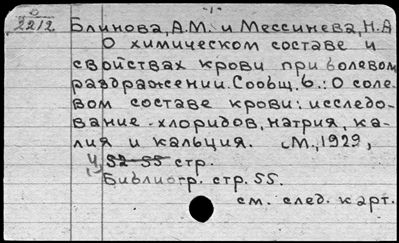 2212 Блинова, А.М. и Мессинева, Н.А
О химическом составе и
свойствах крови при болевом
раздражении. Сообщ. 6.: О соле-
вом составе крови: исследо-
вание хлоридов, натрия, ка-
лия и кальция. М., 1929,
52-55 стр.
Библиогр. стр. 55.
см. след. карт.